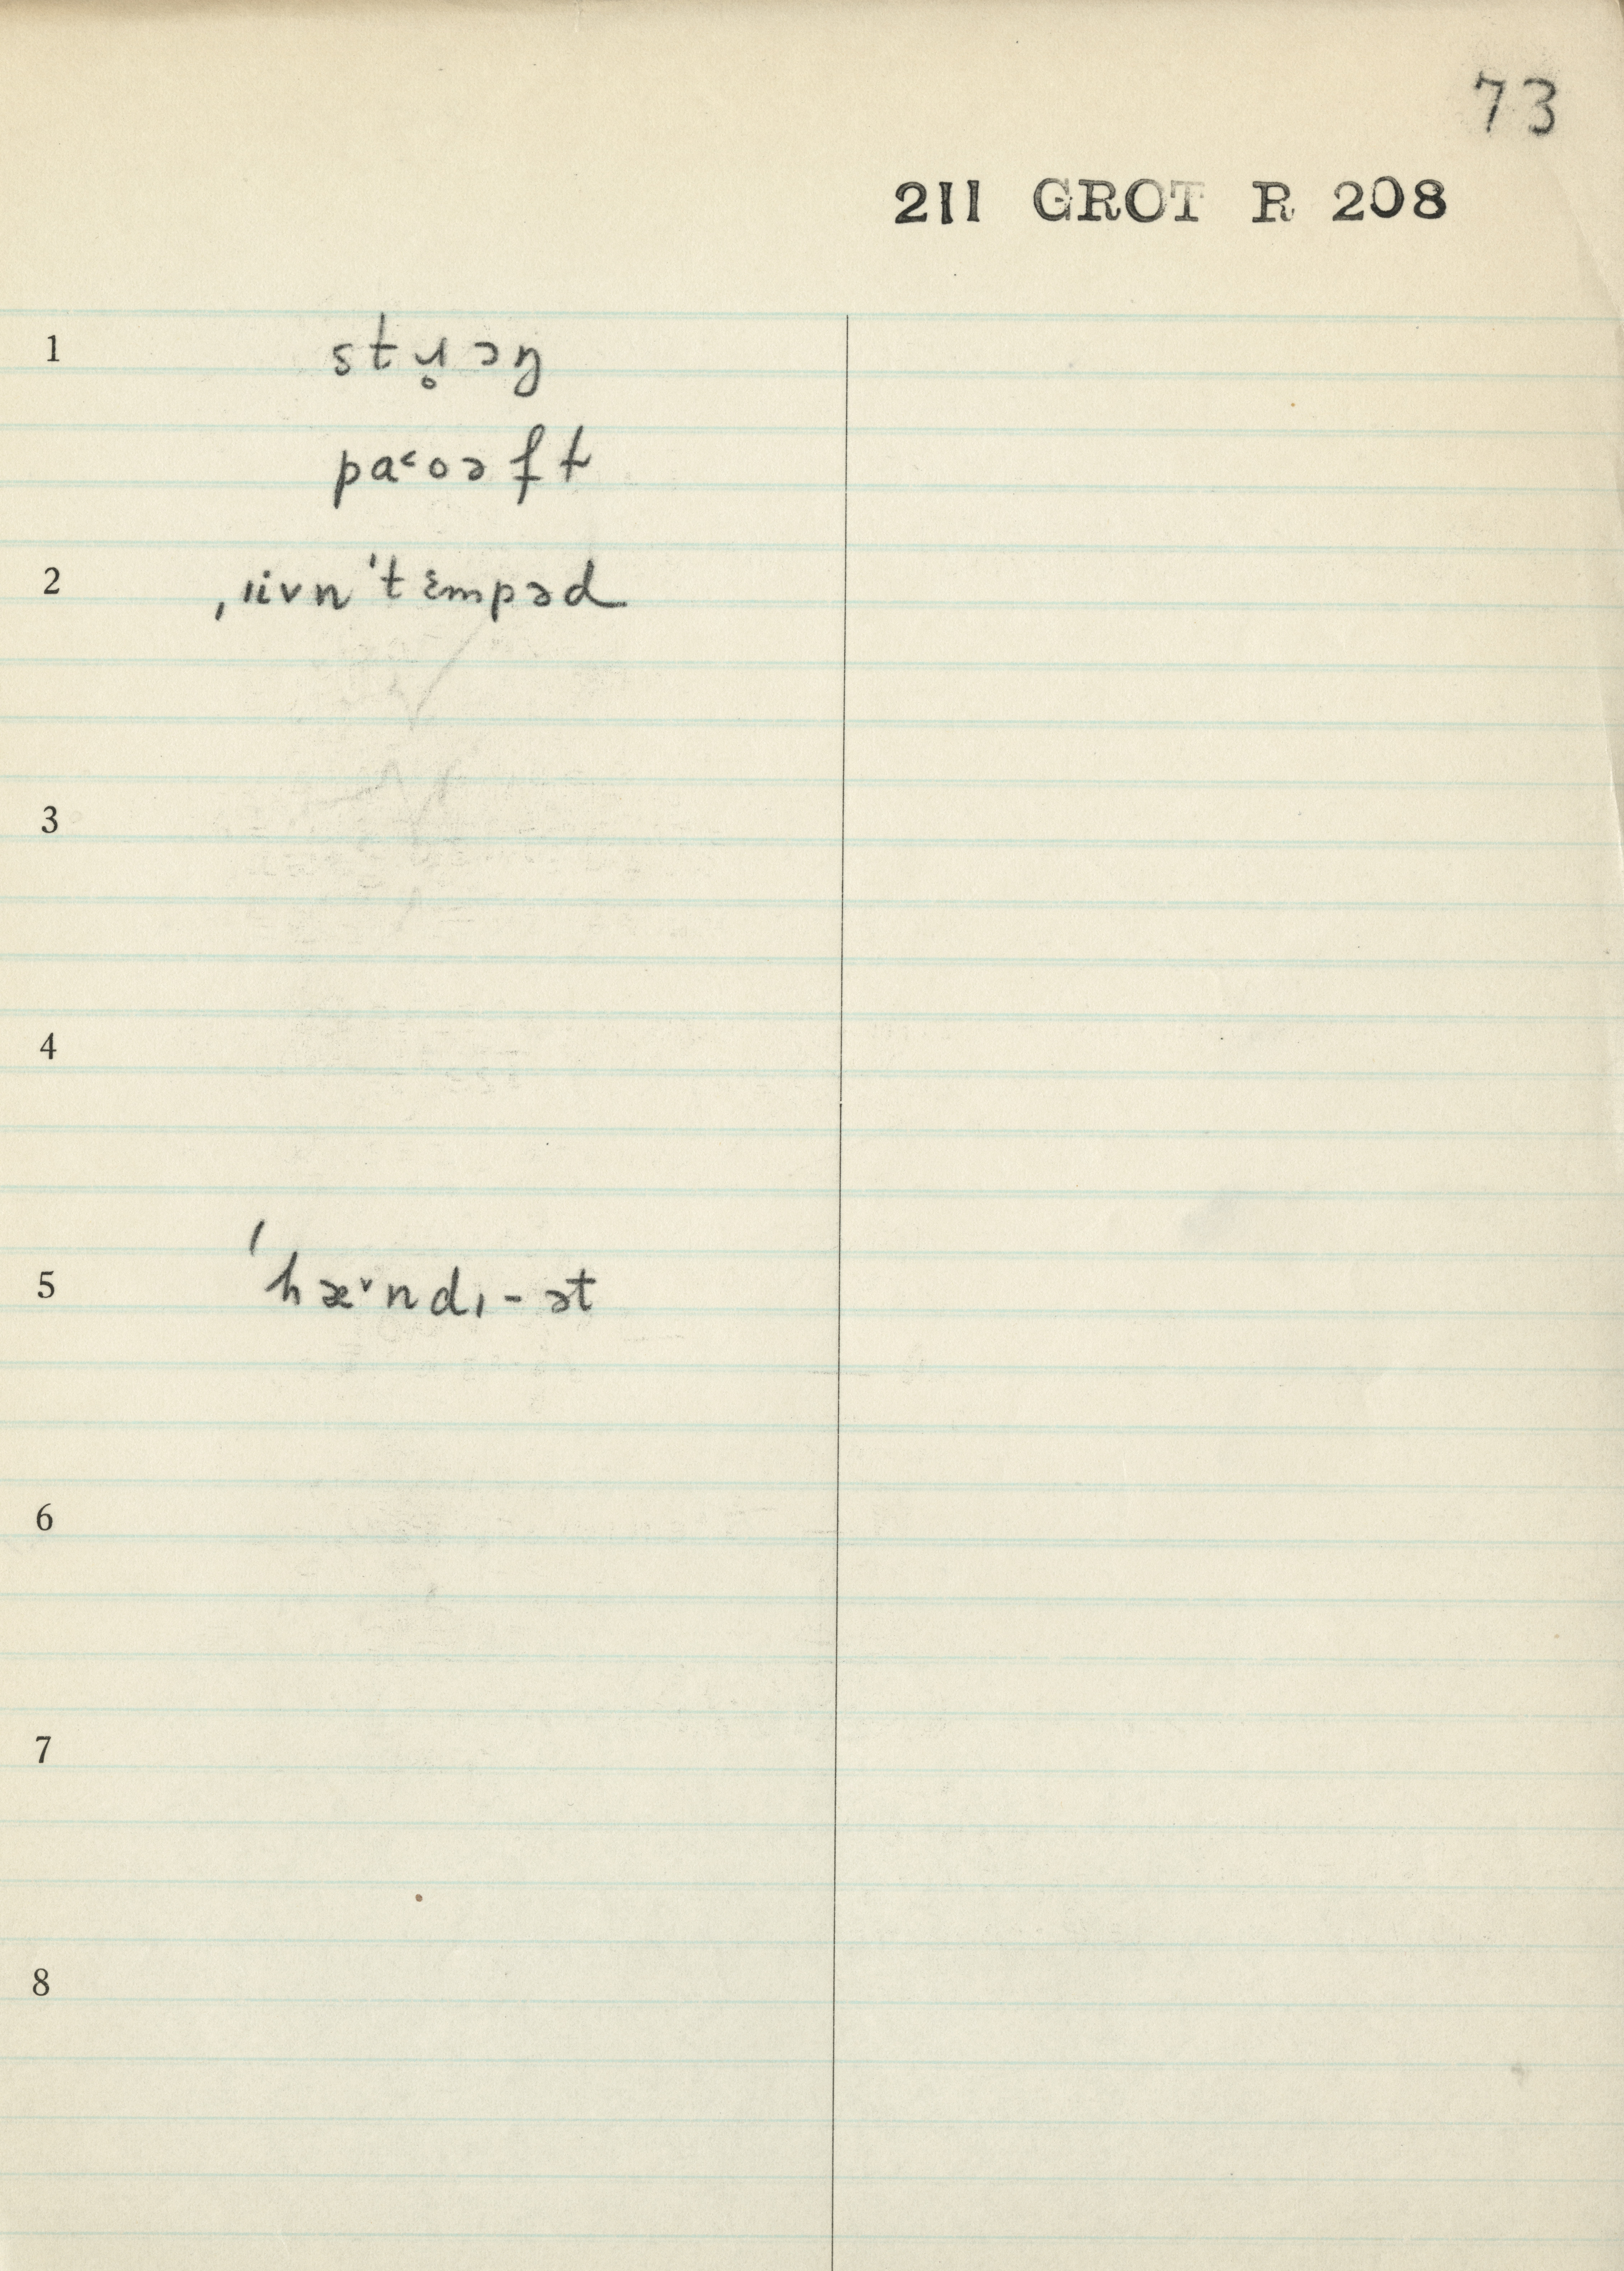 73
211 GROT R 208
1 stɹ̥ɔŋ
pa˂oəft
2 ˌiivn ˈtɛmpəd
3
4
5 ˈhæ˅ndɪ-ət
6
7
8